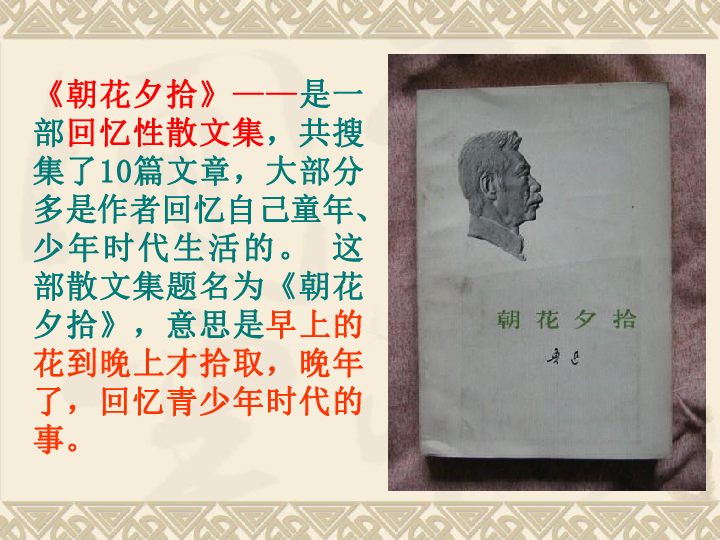 《朝花夕拾》——是一
部回忆性散文集，共搜
集了10篇文章，大部分
多是作者回忆自己童年、
少年时代生活的。 这
部散文集题名为《朝花
夕拾》，意思是早上的
花到晚上才拾取，晚年
了，回忆青少年时代的
事。
朝花夕拾
鲁迅